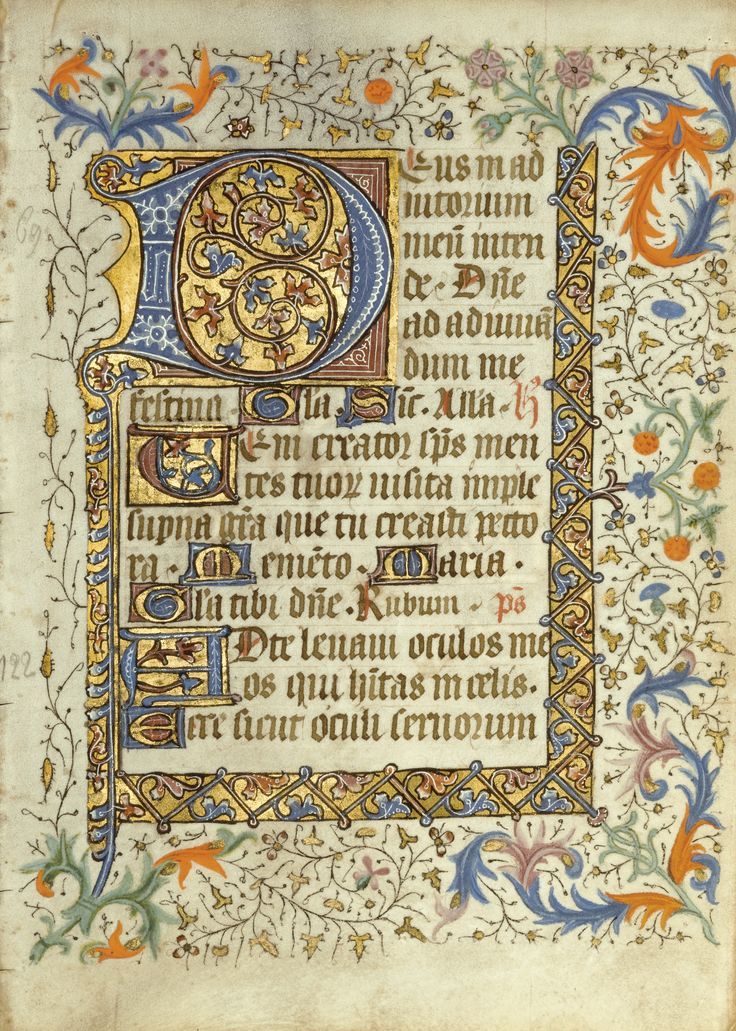 Deus in ad
iutorium
meū inten
de. Dn̄e
ad adiuuā
dum me
festina. Gl̄a. Sic̄. Alla. H
Veni creator sp̄s men
tes tuoꝝ uisita imple
sup̄na gr̄a que tu creasti pecto
ra. Memēto. Maria.
Gl̄a tibi dn̄e. Rubum. ps̄
Ad te leuaui oculos me
os qui hītas in celis.
Ecce sicut oculi seruorum
69
122